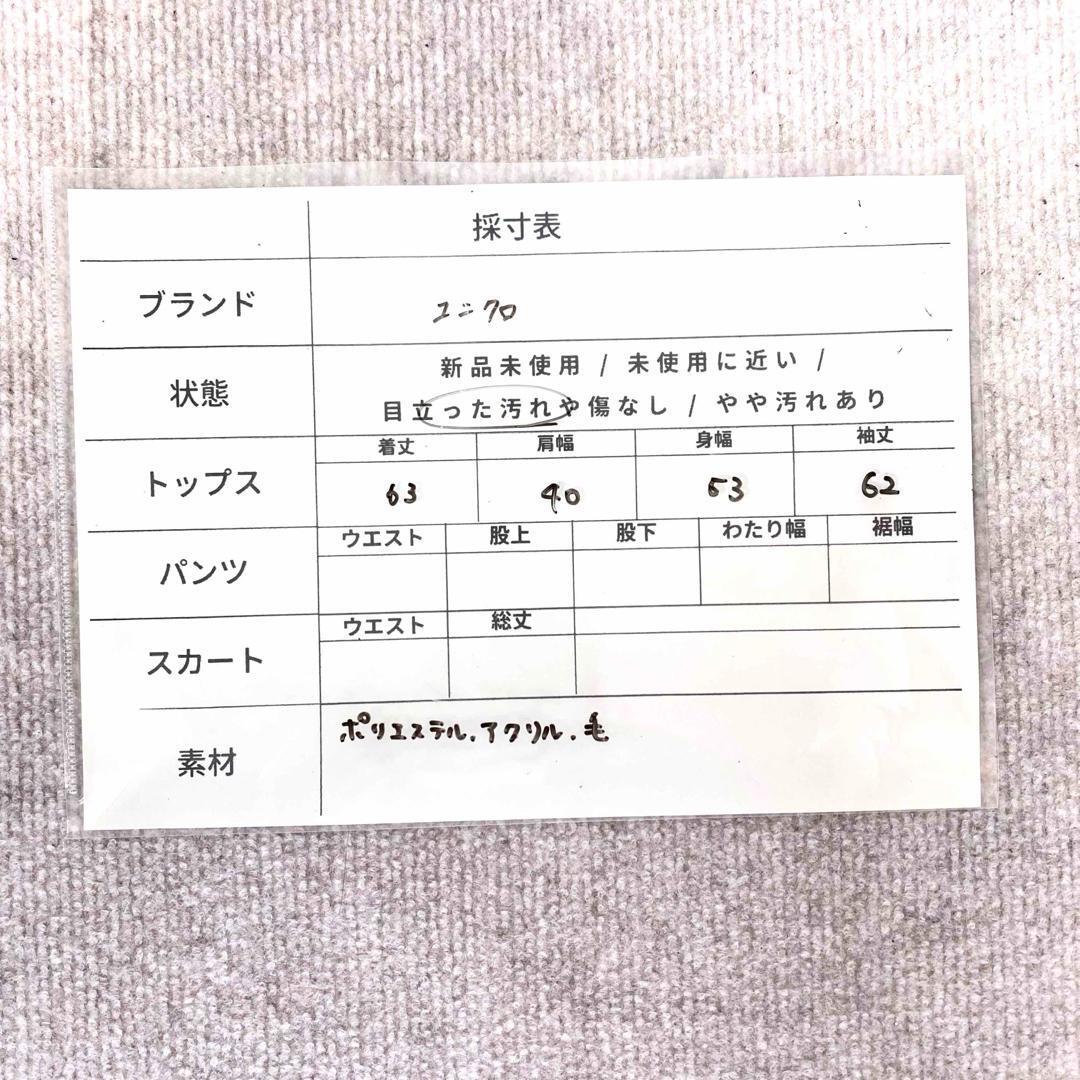 採寸表
ブランド ユニクロ
新品未使用 / 未使用に近い /
状態
目立った汚れや傷なし / やや汚れあり
着丈 肩幅 身幅 袖丈
トップス 63 40 53 62
ウエスト 股上 股下 わたり幅 裾幅
パンツ
ウエスト 総丈
スカート
ポリエステル.アクリル.毛
素材